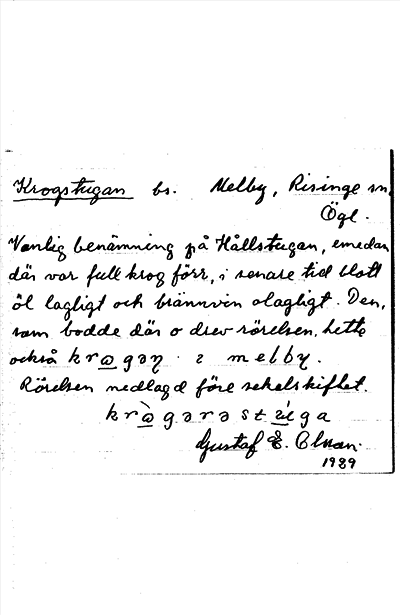 Krogstugan bs. Melby, Risinge sn.
Ögl.
Vanlig benämning på Hållstugan, emedan
där var full krog förr, i senare tid blott
öl lagligt och brännvin olagligt. Den,
som bodde där o drev rörelsen, hette
också krωgəɳ ı melby.
Rörelsen nedlagd före sekelskiftet.
krὼgərəstúga
Gustaf E. Olsson.
1939